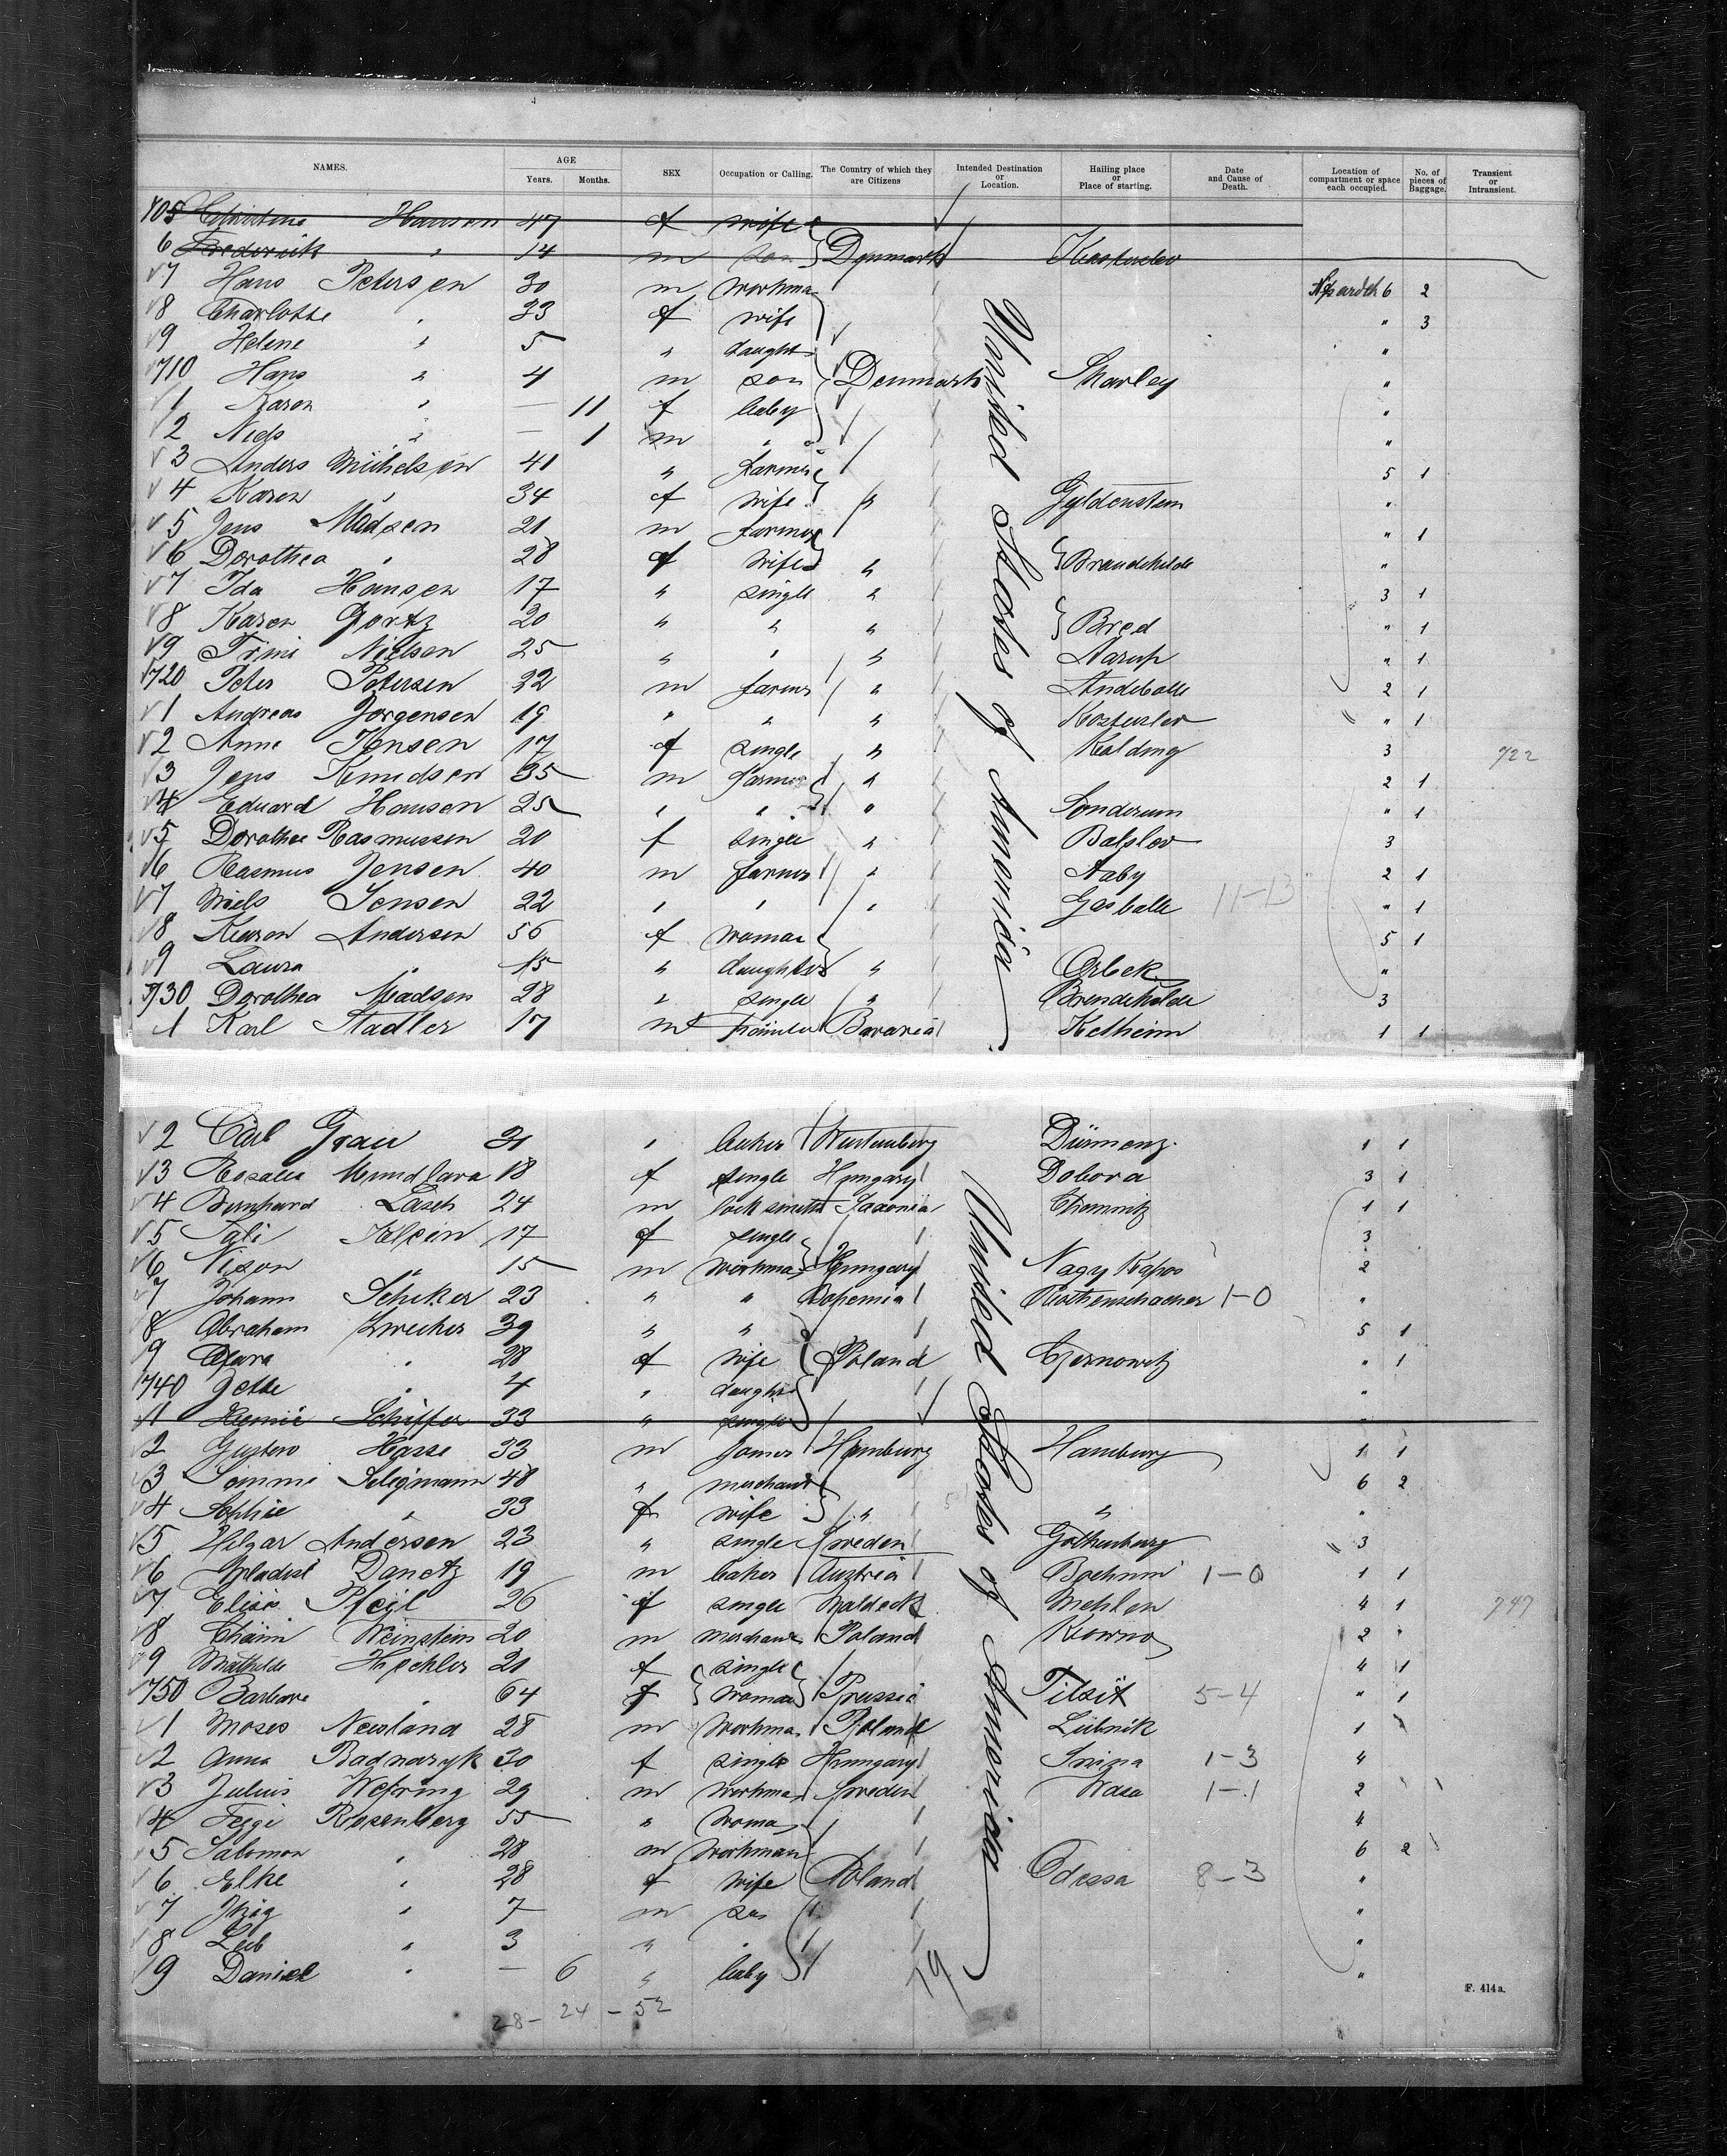 NAMES. AGE Years. Months. SEX Occupation or Calling. The Country of which they are Citizens Intended Destination or Location. Hailing place or Place of starting. Date and Cause of Death. Location of compartment or space each occupied. No. of pieces of Baggage. Transient or Intransient.
705 Christine Hansen 47 f wife
6 Frederick " 14 m son Denmark
7 Hans Petersen 30 m workma 6 2
8 Charlotte " 33 f wife " 3
9 Helene " 5 " daught "
710 Hans " 4 m son Denmark "
1 Karen " — 11 f baby "
2 Niels " — 1 m " "
3 Anders Michelsen 41 " farmer 5 1
4 Karen " 34 f wife " "
5 Jens Madsen 21 m farmer " 1
6 Dorothea " 28 f wife " "
7 Ida Hansen 17 " single " 3 1
8 Karen Gortz 20 " " " Bred " 1
9 Trine Nielsen 25 " " " Aarup " 1
720 Peter Petersen 22 m farmer " 2 1
1 Andreas Jorgensen 19 " " " " 1
2 Anne Jensen 17 f single " Kolding 3 722
3 Jens Knudsen 35 m farmer " 2 1
4 Eduard Hansen 25 " " " Sonderum " 1
5 Dorothea Rasmussen 20 f single " Balslev 3
6 Rasmus Jensen 40 m farmer " Aaby 2 1
7 Niels Jensen 22 " " " Gesballe 11-13 " 1
8 Karen Andersen 56 f woman 5 1
9 Laura " 15 " daughter " Orbek "
730 Dorothea Madsen 28 " single " Brendekilde 3
1 Karl Stadler 17 m painter Bavaria Kelheim 1 1
United States of America
2 Carl Grau 31 " baker Wurtemberg Dürmenz 1 1
3 Rosalia 18 f single Hungary Dobora 3 1
4 Bernhard Lasch 24 m locksmith Saxonia Chemnitz 1 1
5 Sali Klein 17 f single 3
6 " 15 m workma Hungary Nagy Kapos 2
7 Johann 23 " " Bohemia 1-0 "
8 Abraham Zwecker 39 " " 5 1
9 " 28 f wife Poland Czernowitz " 1
740 Jette " 4 " daught "
1 Schiffer 33 " single
2 Gustav Hasse 33 m Hamburg Hamburg 1 1
3 Seligmann 48 " merchant 6 2
4 Sophie " 33 f wife " " "
5 Andersen 23 " single Sweden Gothenburg 3
6 Danetz 19 m baker Austria 1-0 1 1
7 Elise Pfeil 26 f single Waldeck Mehlen 4 1 747
8 Chaim Weinstein 20 m merchant Poland Kowno 2 "
9 Mathilde Hechler 21 f single 4 1
750 Barbara " 64 f woman Prussia Tilsit 5-4 " 1
1 Moses Newland 28 m workma Poland Lübnik 1
2 Anna Badnarzyk 30 f single Hungary Snina 1-3 4
3 Julius 29 m workma Sweden Wasa 1-1 2
4 Feige Rosenberg 55 " woma 4
5 Salomon " 28 m workman 6 2
6 Elke " 28 f wife Poland Odessa 8-3 "
7 " 7 m son "
8 Leib " 3 " " "
9 Daniel " — 6 " baby "
United States of America
19
28- 24 - 52
F. 414a.